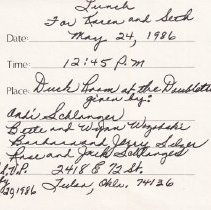 Lunch
For Karen and Seth
Date: May 24, 1986
Time: 12:45 P.M
Place: Duck Room at the Doubletree
given by:
Andi Schlanger
Bette and
Barbara and Jerry Silver
Rose and Jack Schlanger
R.S.V.P. 2418 E 72 St.
by
1986 Tulsa, Okla. 74136